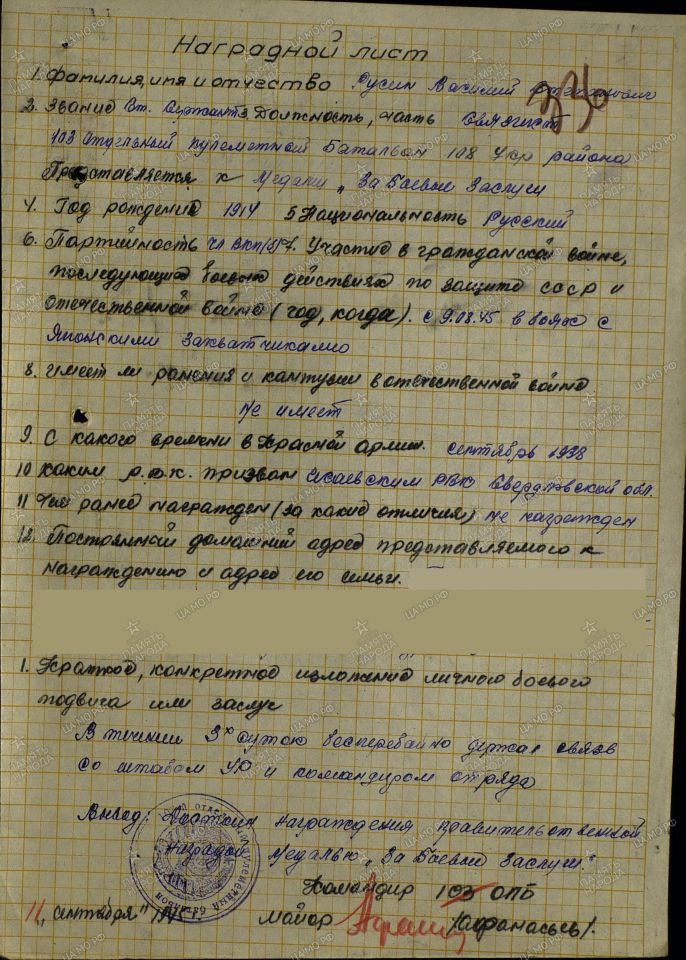 Наградной лист
1. Фамилия, имя и отчество Русин Василий
2. Звание Ст. Сержант 3. Должность, часть Связист
103 Отдельный пулеметный Баталъон 108 Укр района
Представляется к Медали „За Боевые Заслуги
4. Год рождения 1914 5 Национальность Русский
6. Партийность чл ВКП(б) 7. Участие в гражданской войне,
последующих боевых действиях по защите СССР и
отечественной войне (год, когда). с 9.08.45 в боях с
Японскими захватчиками
8. Имеет ли ранения и контузии в отечественной войне
не имеет
9. С какого времени в Красной армии. сентябрь 1938
10 каким р.в.к. призван Исаевским РВК Свердловской обл.
11 Чем ранее награжден (за какие отличия) не награжден
12. Постоянный домашний адрес представляемого к
награждению и адрес его семьи.
1. Краткое, конкретное изложение личного боевого
подвига или заслуг
В течении 3х суток бесперебойно держал связь
со штабом УР и командиром отряда
Вывод: Достоин награждения правительственной
наградой Медалью „За Боевые Заслуги."
Командир 103 ОПБ
11 „сентября" майор /Афанасьев/.